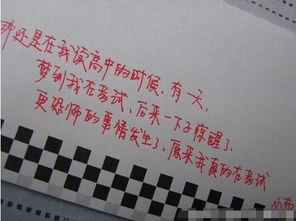 还是在我读高中的时候，有一天，
梦到我在考试，后来一下子惊醒了，
更恐怖的事情发生了，原来我真的在考试